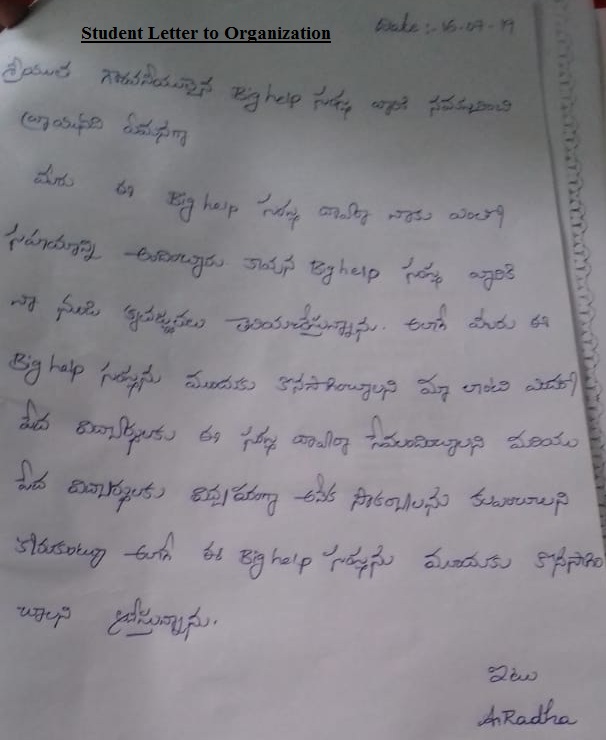 Student Letter to Organization
Date :- 16-07-19
శ్రీయుత గౌరవనీయులైన Big help సంస్థ వారికి నమస్కరించి
వ్రాయునది ఏమనగా
మీరు ఈ Big help సంస్థ ద్వారా నాకు ఎంతో
సహాయాన్ని అందించారు. కావున Big help సంస్థ వారికి
నా నుండి కృతజ్ఞతలు తెలియచేస్తున్నాను. అలాగే మీరు ఈ
Big help సంస్థను ముందుకు కొనసాగించాలని మా లాంటి ఎందరో
పేద విద్యార్థులకు ఈ సంస్థ ద్వారా సేవలందించాలని మరియు
పేద విద్యార్థులకు విద్యాపరంగా అనేక సౌకర్యాలను కలిగించాలని
కోరుకుంటూ అలాగే ఈ Big help సంస్థను ముందుకు కొనసాగిం
చాలని ఆశిస్తున్నాను.
ఇట్లు
A.Radha